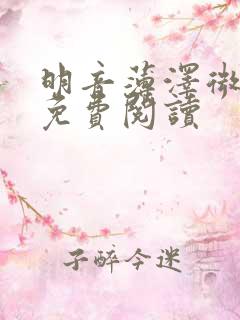 明音薄澤微
免費閱讀
子醉今迷